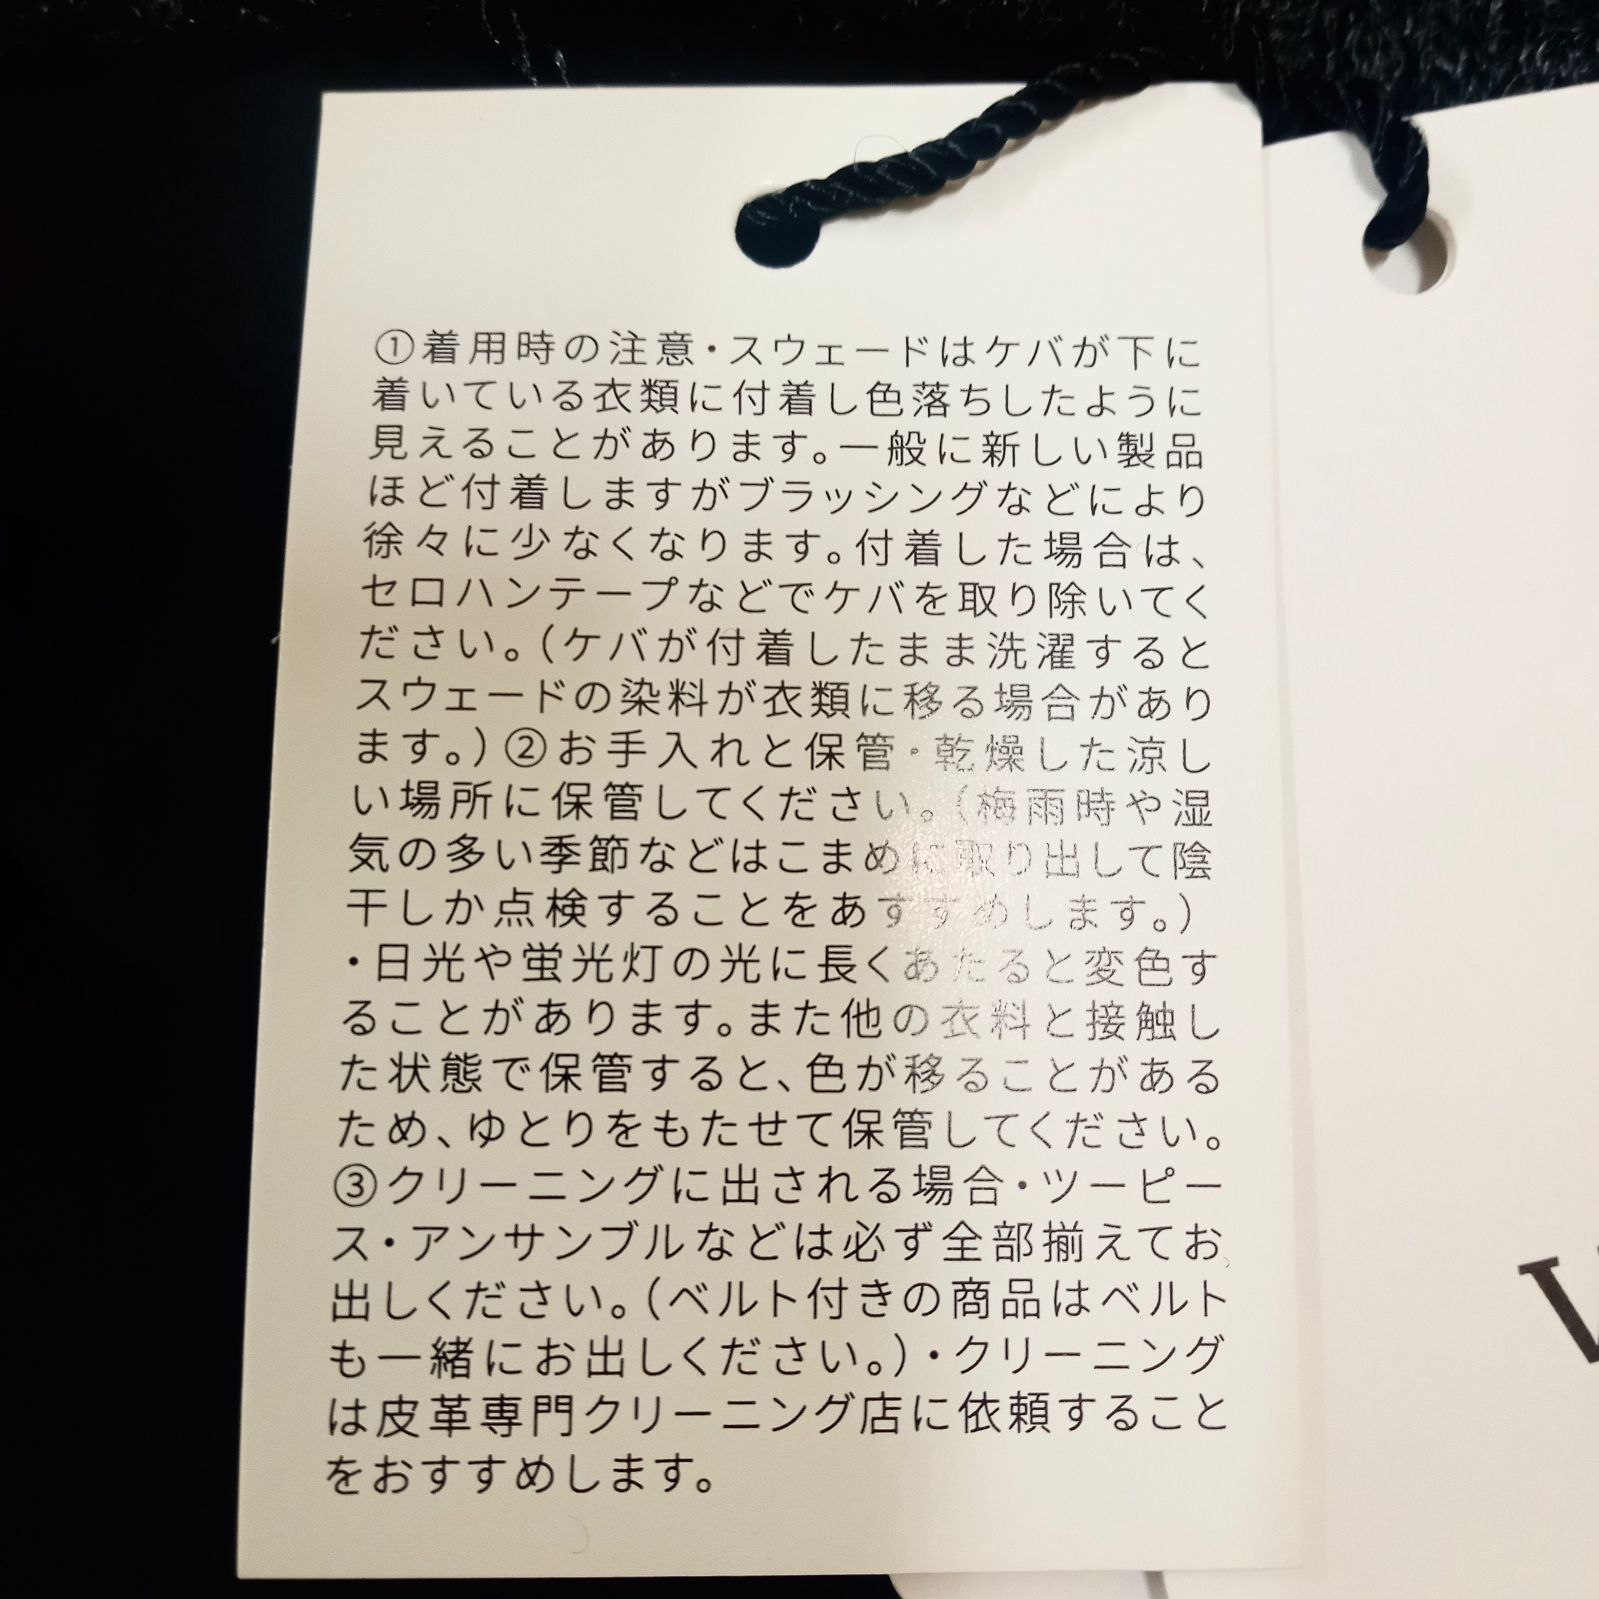 ①着用時の注意・スウェードはケバが下に
着いている衣類に付着し色落ちしたように
見えることがあります。一般に新しい製品
ほど付着しますがブラッシングなどにより
徐々に少なくなります。付着した場合は、
セロハンテープなどでケバを取り除いてく
ださい。(ケバが付着したまま洗濯すると
スウェードの染料が衣類に移る場合があり
ます。)②お手入れと保管・乾燥した涼し
い場所に保管してください。(梅雨時や湿
気の多い季節などはこまめに取り出して陰
干しか点検することをあすすめします。)
・日光や蛍光灯の光に長くあたると変色す
ることがあります。また他の衣料と接触し
た状態で保管すると、色が移ることがある
ため、ゆとりをもたせて保管してください。
③クリーニングに出される場合・ツーピー
ス・アンサンブルなどは必ず全部揃えてお
出しください。(ベルト付きの商品はベルト
も一緒にお出しください。)・クリーニング
は皮革専門クリーニング店に依頼すること
をおすすめします。